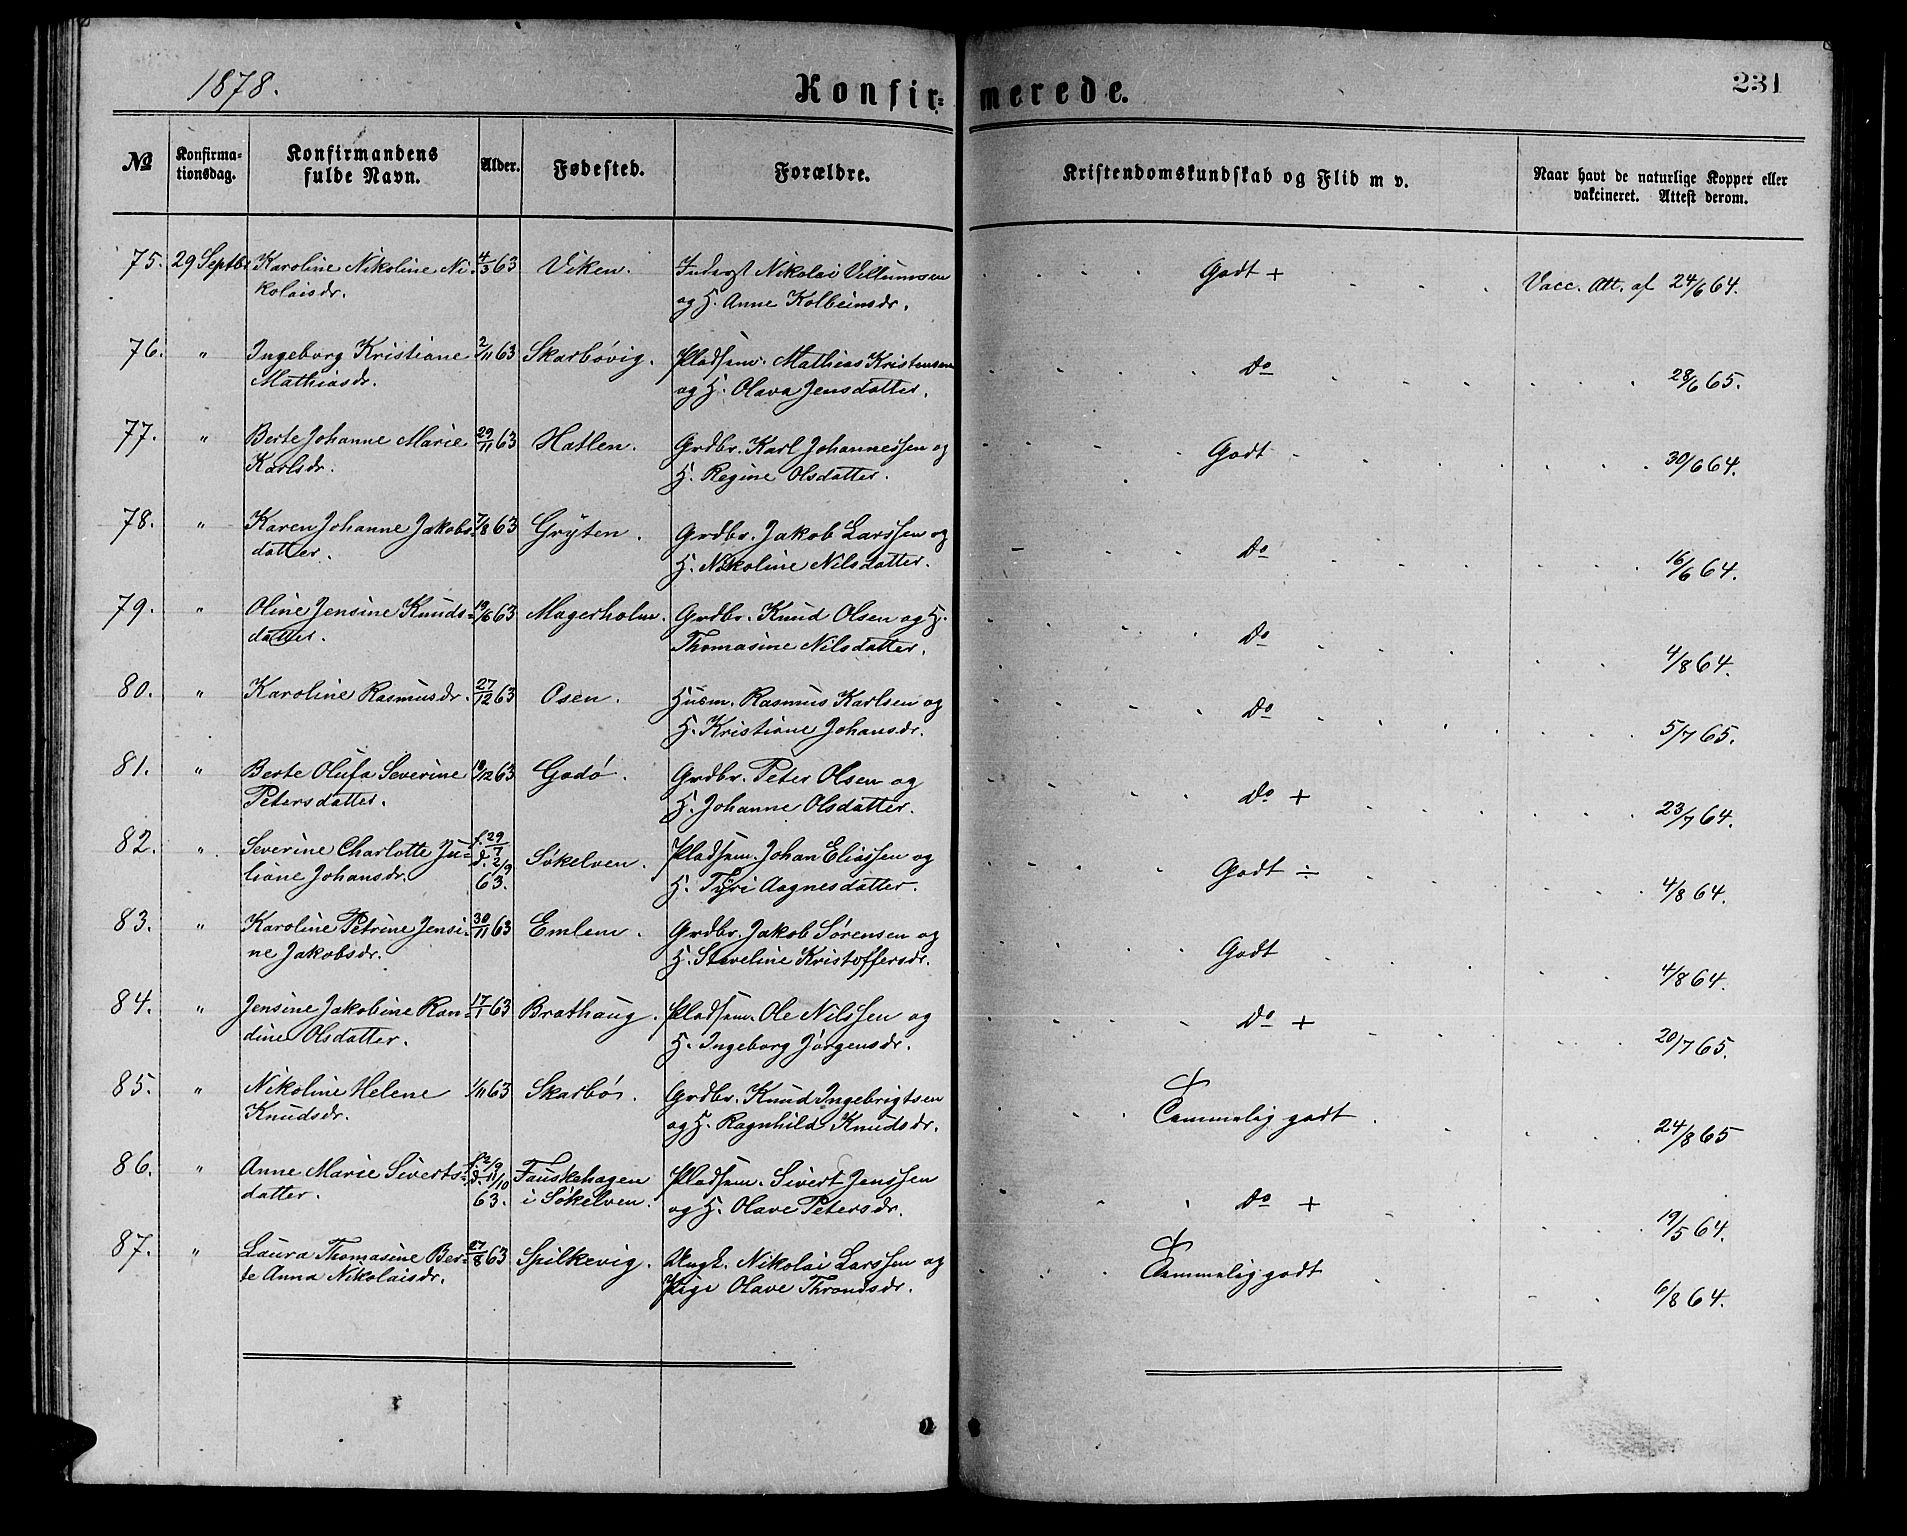 1878.
Konfir=
merede.
231
No
Konfirma-
tionsdag.
Konfirmandens
fulde Navn.
Alder.
Fødested.
Forældre.
Kristendomskundskab og Flid m v.
Naar havt de naturlige Kopper eller
vakcineret. Attest derom.
75. 29 Septbr Karoline Nikoline Ni- 4/3 63 Viken. Inderst Nikolai Villumsen Godt + Vacc. Att. af 24/6 64.
kolaisdr. og H. Anne Kolbeinsdr.
76. " Ingeborg Kristiane 2/11 63 Skarbövig. Pladsem. Mathias Kristensen Do 28/6 65.
Mathiasdr. og H. Olava Jensdatter.
77. " Berte Johanne Marie 29/11 63 Hatlen. Grdbr. Karl Johannessen og Godt 30/6 64.
Karlsdr. H. Regine Olsdatter.
78. " Karen Johanne Jakobs- 7/8 63 Gryten. Grdbr. Jakob Larssen og Do 16/6 64.
datter. H. Nikoline Nilsdatter.
79. " Oline Jensine Knuds- 19/6 63 Magerholm. Grdbr. Knud Olsen og H. Do 4/8 64.
datter. Thomasine Nilsdatter.
80. " Karoline Rasmusdr. 27/12 63 Osen. Husm. Rasmus Karlsen og Do 5/7 65.
H. Kristiane Johansdr.
81. " Berte Olufa Severine 19/12 63 Godö. Grdbr. Peter Olsen og Do + 23/7 64.
Petersdatter. H. Johanne Olsdatter.
82. " Severine Charlotte Ju- f. 29/7 d. 2/9 63. Sökelven. Pladsem. Johan Eliassen og Godt ÷ 4/8 64.
liane Johansdr. H. Tyri Aagnesdatter.
83. " Karoline Petrine Jensi- 30/11 63 Emlem. Grdbr. Jakob Sørensen og Godt 4/8 64.
ne Jakobsdr. H. Staveline Kristoffersdr.
84. " Jensine Jakobine Ran- 17/1 63 Brathaug. Pladsem. Ole Nilssen og Do + 20/7 65.
dine Olsdatter. H. Ingeborg Jørgensdr.
85. " Nikoline Helene 1/11 63 Skarbö. Grdbr. Knud Ingebrigtsen Temmelig godt 24/8 65
Knudsdr. og H. Ragnhild Knudsdr.
86. " Anne Marie Siverts- f. 2/9 d. 11/10 63. Fauskehagen Pladsem. Sivert Jenssen Do + 19/5 64.
datter. i Sökelven. og H. Olave Petersdr.
87. " Laura Thomasine Ber- 27/8 63 Spilkevig. Ungk. Nikolai Larssen og Temmelig godt 6/8 64.
te Anna Nikolaisdr. Pige Olave Throndsdr.